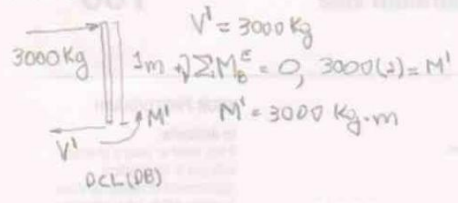 V' = 3000 Kg
3000 Kg
1m
+↴ΣM_B^E = 0, 3000(1) = M'
M'
M' = 3000 Kg·m
V'
DCL(DB)